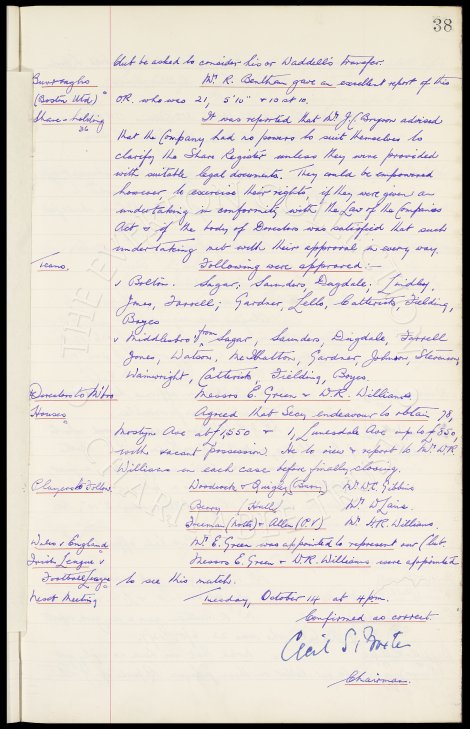 38
club be asked to consider his or Waddell's transfer.
Burroughs
(Boston Utd)
Mr. R. Bentham gave an excellent report of this
O.R. who was 21, 5'10" & 10 st 10.
Share-holding
It was reported that Mr J.C. Bryson advised
that the Company had no powers to suit themselves to
clarify the Share Register unless they were provided
with suitable legal documents. They could be empowered
however, to exercise their rights, if they were given an
undertaking in conformity with the Law of the Companies
Act, & if the body of Directors was satisfied that such
undertaking met with their approval in every way.
Teams.
Following were approved:-
v Bolton. Sagar, Saunders, Dugdale; Lindley,
Jones, Farrell; Gardner, Lello, Catterick, Fielding,
Boyes
v Middlesbro' from Sagar, Saunders, Dugdale, Farrell
Jones, Watson, Gardner, Johnson, Stevenson,
Wainwright, Catterick, Fielding, Boyes.
Directors to M'bro
Messrs E. Green & D.R. Williams
Houses
Agreed that Secy endeavour to obtain 78,
Mostyn Ave at £1,550 & 1, Lunesdale Ave up to £850,
with vacant possession. He to view & report to Mr W.R.
Williams in each case before finally closing.
Players to Follow
Woodcock & Quigley (Bury) Mr W.C. Gibbins
Berry (Hull) Mr D
Freeman (Notts) & Allen (P.V) Mr W.R. Williams.
Wales v England
Mr E. Green was appointed to represent our Club.
Irish League v
Football League
Messrs E. Green & D.R. Williams were appointed
to see this match.
Next Meeting
Tuesday, October 14 at 4 pm.
Confirmed as correct.
Cecil S. Baxter
Chairman.